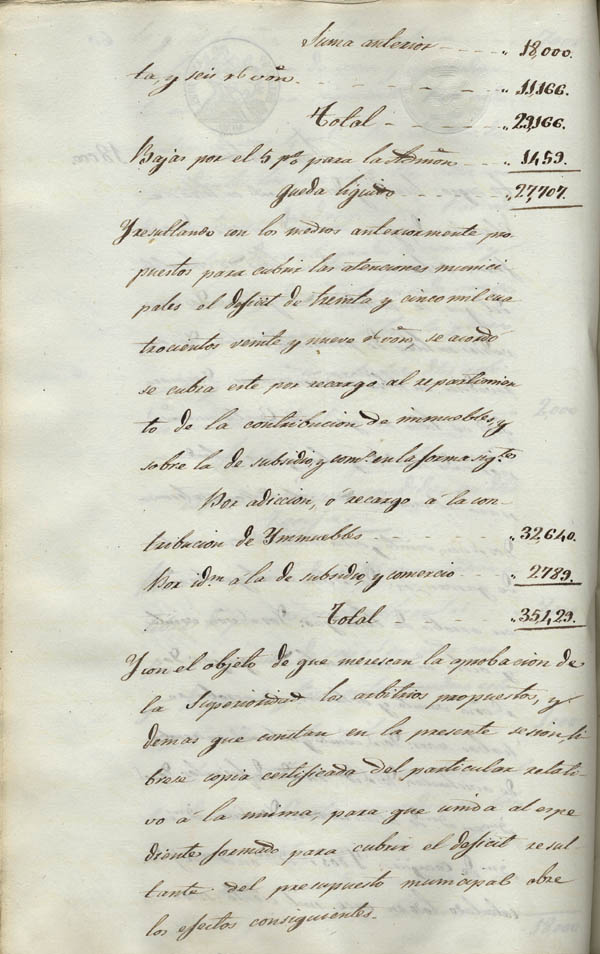 Suma anterior - - - - " 18,000.
ta, y seis rs von. - - - - - " 11,166.
Total - - - - " 29,166.
Bajas por el 5 p% para la Admon - - " 1,459.
queda liquido - - - - " 27,707.
Y resultando con los medios anteriormente pro
puestos para cubrir las atenciones munici
pales el deficit de treinta y cinco mil cua
trocientos veinte y nueve rs von, se acordó
se cubra este por recargo al repartimien
to de la contribucion de immuebles, y
sobre la de subsidio, y como. en la forma sigte
Por adiccion, ó recargo á la con-
tribucion de Ymmuebles - - - - " 32,640.
Por idm á la de subsidio, y comercio - - - " 2789.
Total - - - - " 35,429.
Y con el objeto de que merescan la aprobacion de
la Superioridad los arbitrios propuestos, y
demas que constan en la presente sesion, li
brese copia certificada del particular relati-
vo á la misma, para que unida al espe
diente formado para cubrir el deficit resul-
tante del presupuesto municipal obre
los efectos consiguientes.